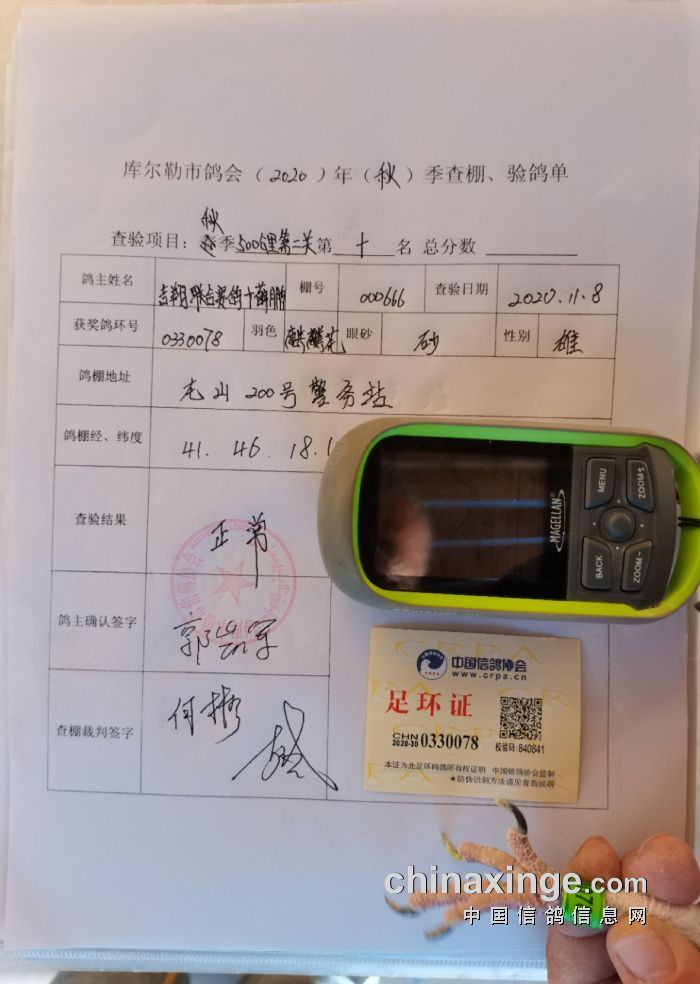 库尔勒市鸽会(2020)年(秋)季查棚、验鸽单
秋
查验项目:季500公里第二关第十名 总分数
鸽主姓名 吉翔联合赛鸽+薛鹏 棚号 000666 查验日期 2020.11.8
获奖鸽环号 0330078 羽色 麒麟花 眼砂 砂 性别 雄
鸽棚地址 200号警务站
鸽棚经、纬度 41.46.18.
查验结果 正常
鸽主确认签字
查棚裁判签字 何彬
MAGELLAN
MENU
ZOOM+
BACK
ZOOM-
中国信鸽协会
www.crpa.cn
足环证
CHN
2020-30 0330078
校验码:840841
本证为此足环码鸽所有权证明 中国信鸽协会监制
★防伪识别方法请见背面说明
chinaxinge.com
中国信鸽信息网